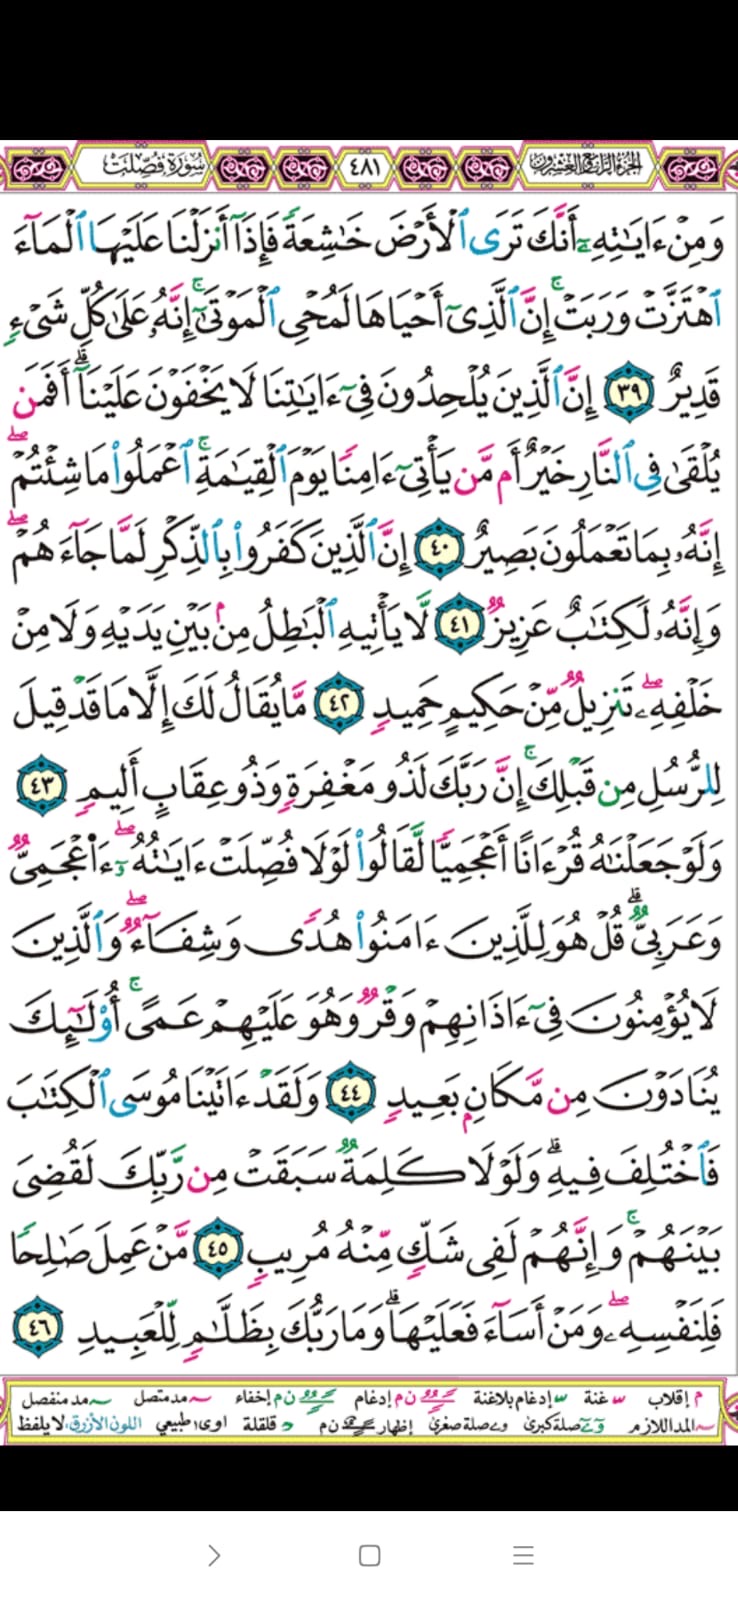 الجزء الرابع والعشرون ٤٨١ سورة فصلت
وَمِنْ ءَايَٰتِهِۦٓ أَنَّكَ تَرَى ٱلْأَرْضَ خَٰشِعَةً فَإِذَآ أَنزَلْنَا عَلَيْهَا ٱلْمَآءَ
ٱهْتَزَّتْ وَرَبَتْ ۚ إِنَّ ٱلَّذِىٓ أَحْيَاهَا لَمُحْىِ ٱلْمَوْتَىٰٓ ۚ إِنَّهُۥ عَلَىٰ كُلِّ شَىْءٍ
قَدِيرٌ ٣٩ إِنَّ ٱلَّذِينَ يُلْحِدُونَ فِىٓ ءَايَٰتِنَا لَا يَخْفَوْنَ عَلَيْنَآ ۗ أَفَمَن
يُلْقَىٰ فِى ٱلنَّارِ خَيْرٌ أَم مَّن يَأْتِىٓ ءَامِنًا يَوْمَ ٱلْقِيَٰمَةِ ۚ ٱعْمَلُوا۟ مَا شِئْتُمْ ۖ
إِنَّهُۥ بِمَا تَعْمَلُونَ بَصِيرٌ ٤٠ إِنَّ ٱلَّذِينَ كَفَرُوا۟ بِٱلذِّكْرِ لَمَّا جَآءَهُمْ ۖ
وَإِنَّهُۥ لَكِتَٰبٌ عَزِيزٌ ٤١ لَّا يَأْتِيهِ ٱلْبَٰطِلُ مِنۢ بَيْنِ يَدَيْهِ وَلَا مِنْ
خَلْفِهِۦ ۖ تَنزِيلٌ مِّنْ حَكِيمٍ حَمِيدٍ ٤٢ مَّا يُقَالُ لَكَ إِلَّا مَا قَدْ قِيلَ
لِلرُّسُلِ مِن قَبْلِكَ ۚ إِنَّ رَبَّكَ لَذُو مَغْفِرَةٍ وَذُو عِقَابٍ أَلِيمٍ ٤٣
وَلَوْ جَعَلْنَٰهُ قُرْءَانًا أَعْجَمِيًّا لَّقَالُوا۟ لَوْلَا فُصِّلَتْ ءَايَٰتُهُۥٓ ۖ ءَا۬عْجَمِىٌّ
وَعَرَبِىٌّ ۗ قُلْ هُوَ لِلَّذِينَ ءَامَنُوا۟ هُدًى وَشِفَآءٌ ۖ وَٱلَّذِينَ
لَا يُؤْمِنُونَ فِىٓ ءَاذَانِهِمْ وَقْرٌ وَهُوَ عَلَيْهِمْ عَمًى ۚ أُو۟لَٰٓئِكَ
يُنَادَوْنَ مِن مَّكَانٍۭ بَعِيدٍ ٤٤ وَلَقَدْ ءَاتَيْنَا مُوسَى ٱلْكِتَٰبَ
فَٱخْتُلِفَ فِيهِ ۗ وَلَوْلَا كَلِمَةٌ سَبَقَتْ مِن رَّبِّكَ لَقُضِىَ
بَيْنَهُمْ ۚ وَإِنَّهُمْ لَفِى شَكٍّ مِّنْهُ مُرِيبٍ ٤٥ مَّنْ عَمِلَ صَٰلِحًا
فَلِنَفْسِهِۦ ۖ وَمَنْ أَسَآءَ فَعَلَيْهَا ۗ وَمَا رَبُّكَ بِظَلَّٰمٍ لِّلْعَبِيدِ ٤٦
م إقلاب غنة إدغام بلاغنة ن م إدغام ن م إخفاء مد متصل مد منفصل
المد اللازم صلة كبرى صلة صغرى إظهار ن م قلقلة اوى طبيعي اللون الأزرق: لا يلفظ